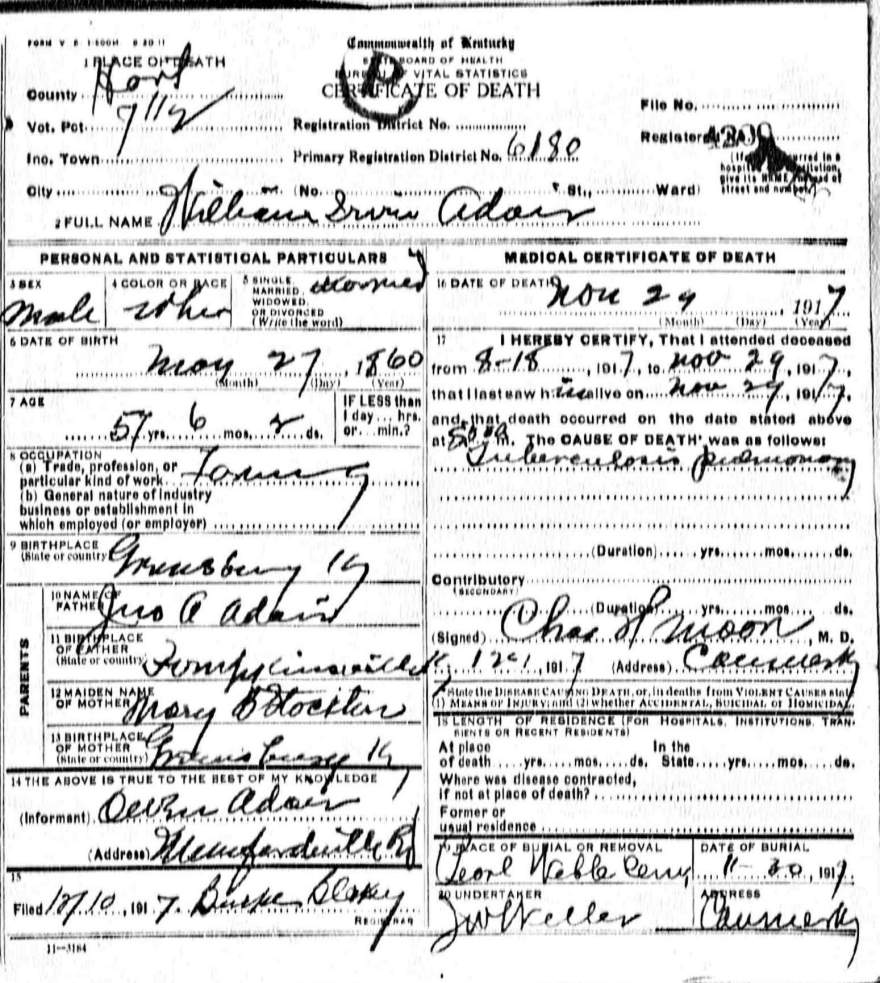 FORM V S 1-500M 8 20 11
Commonwealth of Kentucky
BOARD OF HEALTH
BUREAU OF VITAL STATISTICS
CERTIFICATE OF DEATH
1 PLACE OF DEATH
County Hart
Vot. Pct.
Inc. Town
City (No. St., Ward)
Registration District No.
Primary Registration District No. 6180
File No.
Registered No.
(If death occurred in a
hospital or institution,
give its NAME instead of
street and number)
2 FULL NAME William Irvin Adair
PERSONAL AND STATISTICAL PARTICULARS
3 SEX
Male
4 COLOR OR RACE
5 SINGLE,
MARRIED,
WIDOWED,
OR DIVORCED
(Write the word)
Married
6 DATE OF BIRTH
May 27, 1860
(Month) (Day) (Year)
7 AGE
57 yrs. 6 mos. 2 ds.
IF LESS than
1 day... hrs.
or... min.?
8 OCCUPATION
(a) Trade, profession, or
particular kind of work
(b) General nature of industry
business or establishment in
which employed (or employer)
9 BIRTHPLACE
(State or country)
Greensburg Ky
PARENTS
10 NAME OF
FATHER Jno A Adair
11 BIRTHPLACE
OF FATHER
(State or country) Tompkinsville Ky
12 MAIDEN NAME
OF MOTHER Mary B Stockton
13 BIRTHPLACE
OF MOTHER
(State or country) Greensburg Ky
14 THE ABOVE IS TRUE TO THE BEST OF MY KNOWLEDGE
(Informant) Adair
(Address) Munfordville
15
Filed 12/10, 1917. Blakey
REGISTRAR
11-3184
MEDICAL CERTIFICATE OF DEATH
16 DATE OF DEATH
Nov 29, 1917
(Month) (Day) (Year)
17 I HEREBY CERTIFY, That I attended deceased
from 8-18, 1917, to Nov 29, 1917,
that I last saw him alive on Nov 29, 1917,
and that death occurred on the date stated above
at m. The CAUSE OF DEATH was as follows:
Tuberculosis pulmonary
(Duration) yrs. mos. ds.
Contributory
(SECONDARY)
(Duration) yrs. mos. ds.
(Signed) Chas H Moon, M. D.
12-1, 1917 (Address) Canmer Ky
State the DISEASE CAUSING DEATH, or, in deaths from VIOLENT CAUSES state
(1) MEANS OF INJURY; and (2) whether ACCIDENTAL, SUICIDAL or HOMICIDAL
18 LENGTH OF RESIDENCE (FOR HOSPITALS, INSTITUTIONS, TRAN-
SIENTS OR RECENT RESIDENTS)
At place
of death yrs. mos. ds.
In the
State yrs. mos. ds.
Where was disease contracted,
if not at place of death?
Former or
usual residence
19 PLACE OF BURIAL OR REMOVAL
Pearl Webb Cem
DATE OF BURIAL
11-30, 1917
20 UNDERTAKER
ADDRESS
Canmer Ky